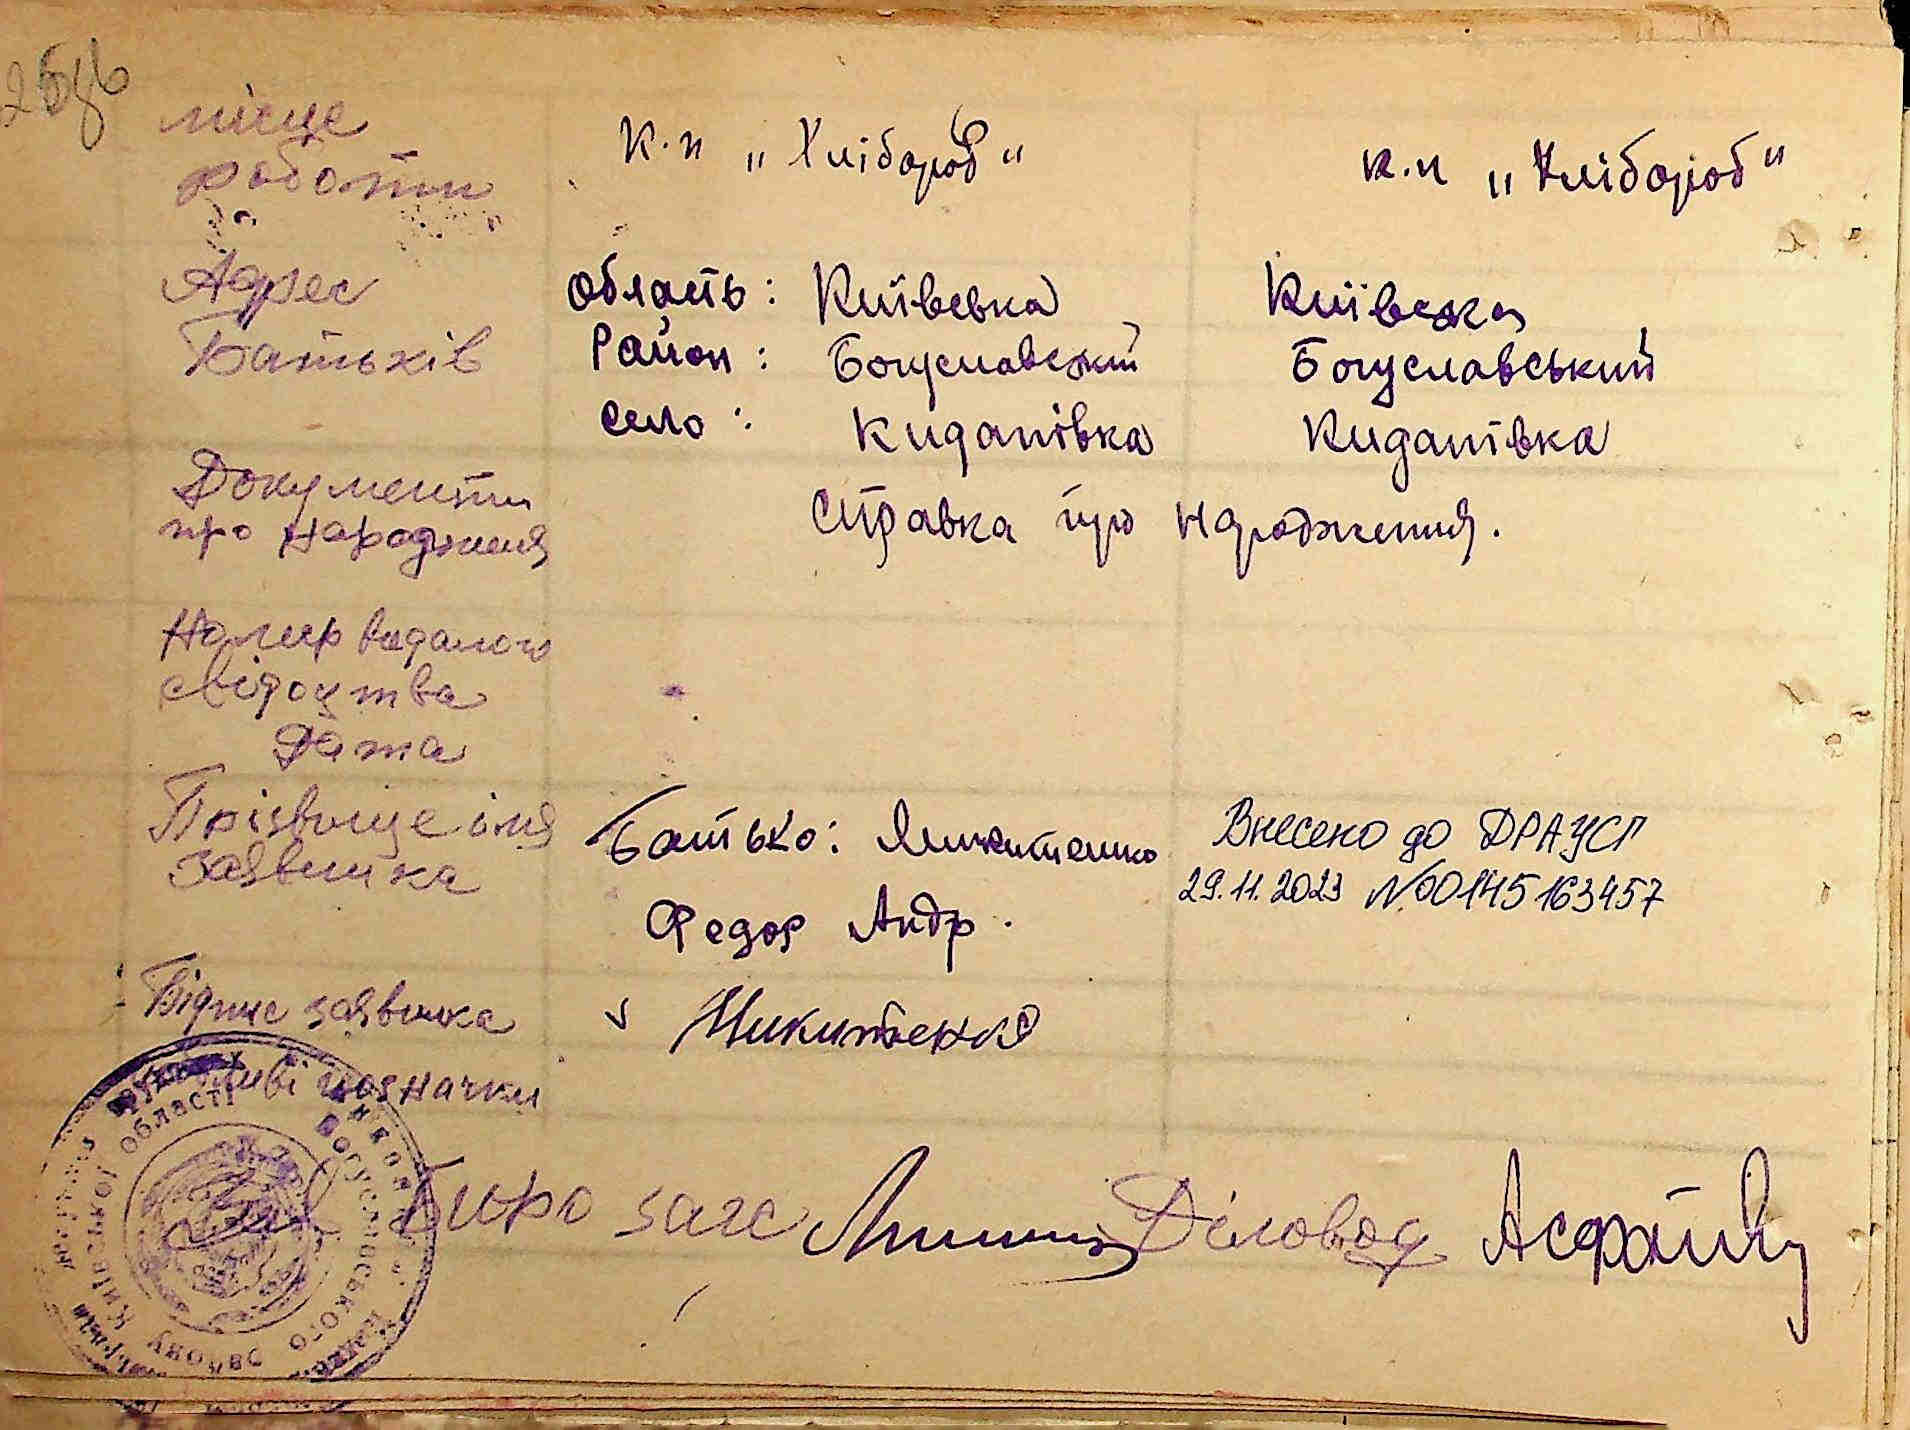 місце
роботи
к.п „Хлібороб“ к.п „Хлібороб“
Адрес
Батьків
область: Київська Київська
Район: Богуславський Богуславський
село: Кидапівка Кидапівка
Документи
про народження
справка про народження.
Номер виданого
свідоцтва
Дата
Прізвище імя
заявника
Батько: Микитенко
Федор Андр.
Внесено до ДРАЦСГ
29.11.2023 №00145163457
Підпис заявника
Микитенко
позначки
Бюро загс Діловод
області
Богуславського
району Київської